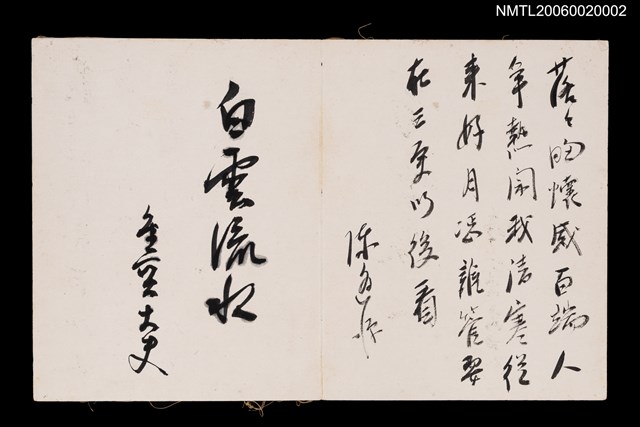 NMTL20060020002
落々胸懷感百端人
爭熱鬧我清寒從
來好月憑誰管要
在三更以後看
陳逢源
白雲流水
大史